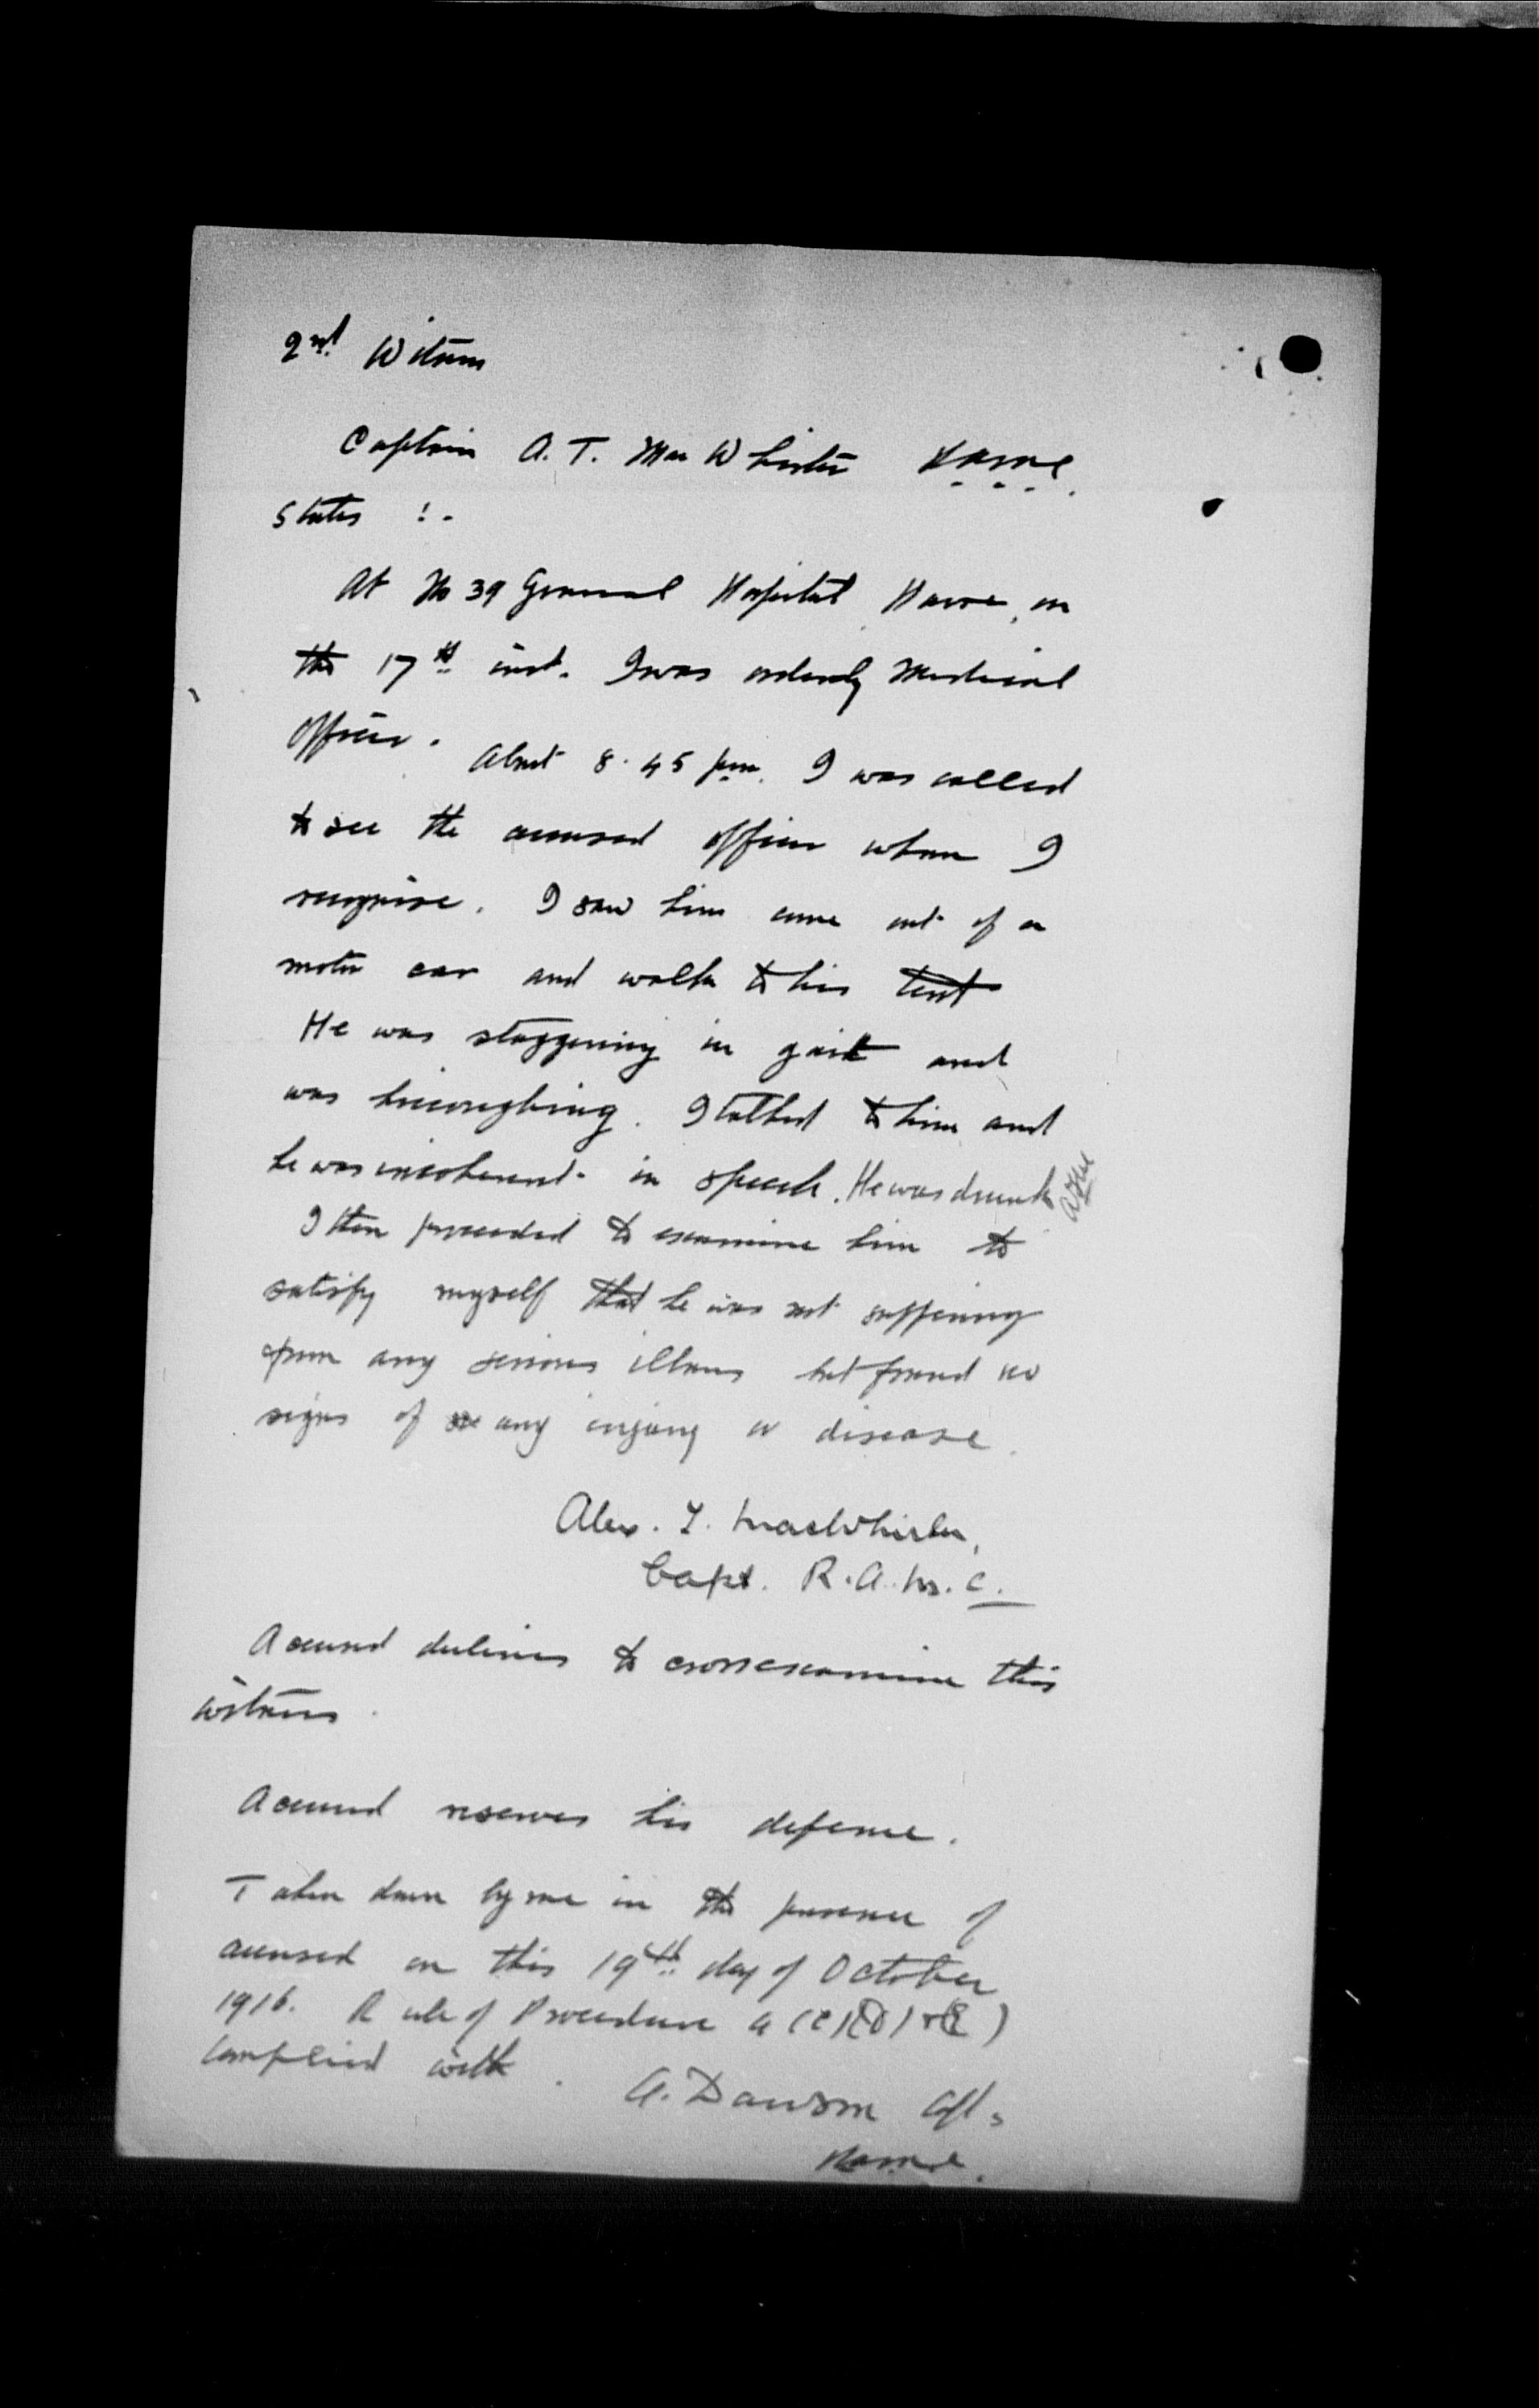 2nd Witness
Captain A. T. MacWhirter R.A.M.C.
states :-
At No 39 General Hospital, Havre, on
the 17th inst. I was orderly Medical
Officer. About 8.45 pm. I was called
to see the accused officer whom I
recognise. I saw him come out of a
motor car and walk to his tent
He was staggering in gait and
was hiccoughing. I talked to him and
he was incoherent in speech. He was drunk
I then proceeded to examine him to
satisfy myself that he was not suffering
from any serious illness but found no
signs of any injury or disease.
Alex. T. MacWhirter,
Capt. R.A.M.C.
Accused declines to cross examine this
witness.
Accused reserves his defence.
Taken down by me in the presence of
accused on this 19th day of October
1916. Rule of Procedure 4 (C)(D) & (E)
complied with.
A. Dawson Cpt.
R.A.M.C.